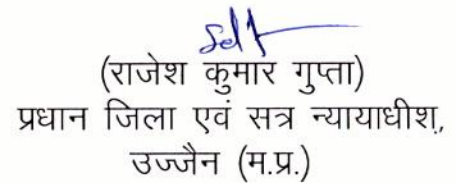 Sd/-
(राजेश कुमार गुप्ता)
प्रधान जिला एवं सत्र न्यायाधीश,
उज्जैन (म.प्र.)